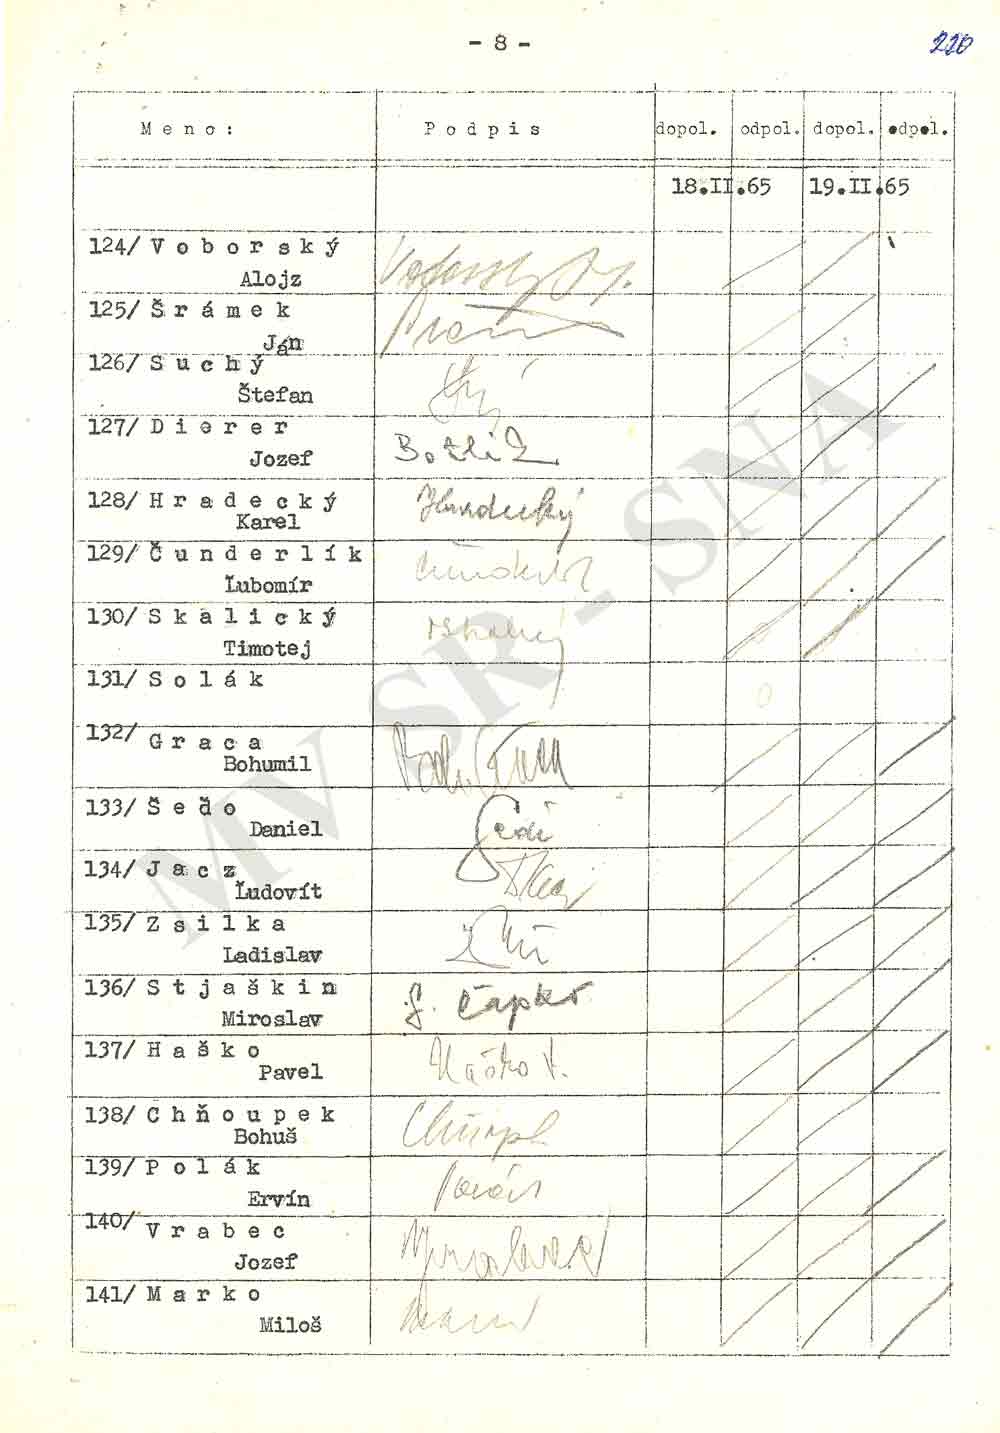 - 8 -
220
M e n o :
P o d p i s
dopol.
odpol.
dopol.
odpol.
18.II.65
19.II.65
124/ V o b o r s k ý
Alojz
125/ Š r á m e k
Ján
126/ S u c h ý
Štefan
127/ D i e r e r
Jozef
Božlík
128/ H r a d e c k ý
Karel
Hradecký
129/ Č u n d e r l í k
Ľubomír
130/ S k a l i c k ý
Timotej
131/ S o l á k
0
132/ G r a c a
Bohumil
133/ Š e ď o
Daniel
134/ J a c z
Ľudovít
135/ Z s i l k a
Ladislav
136/ S t j a š k i n
Miroslav
137/ H a š k o
Pavel
Haško P.
138/ C h ň o u p e k
Bohuš
139/ P o l á k
Ervín
140/ V r a b e c
Jozef
141/ M a r k o
Miloš
MV SR - SNA